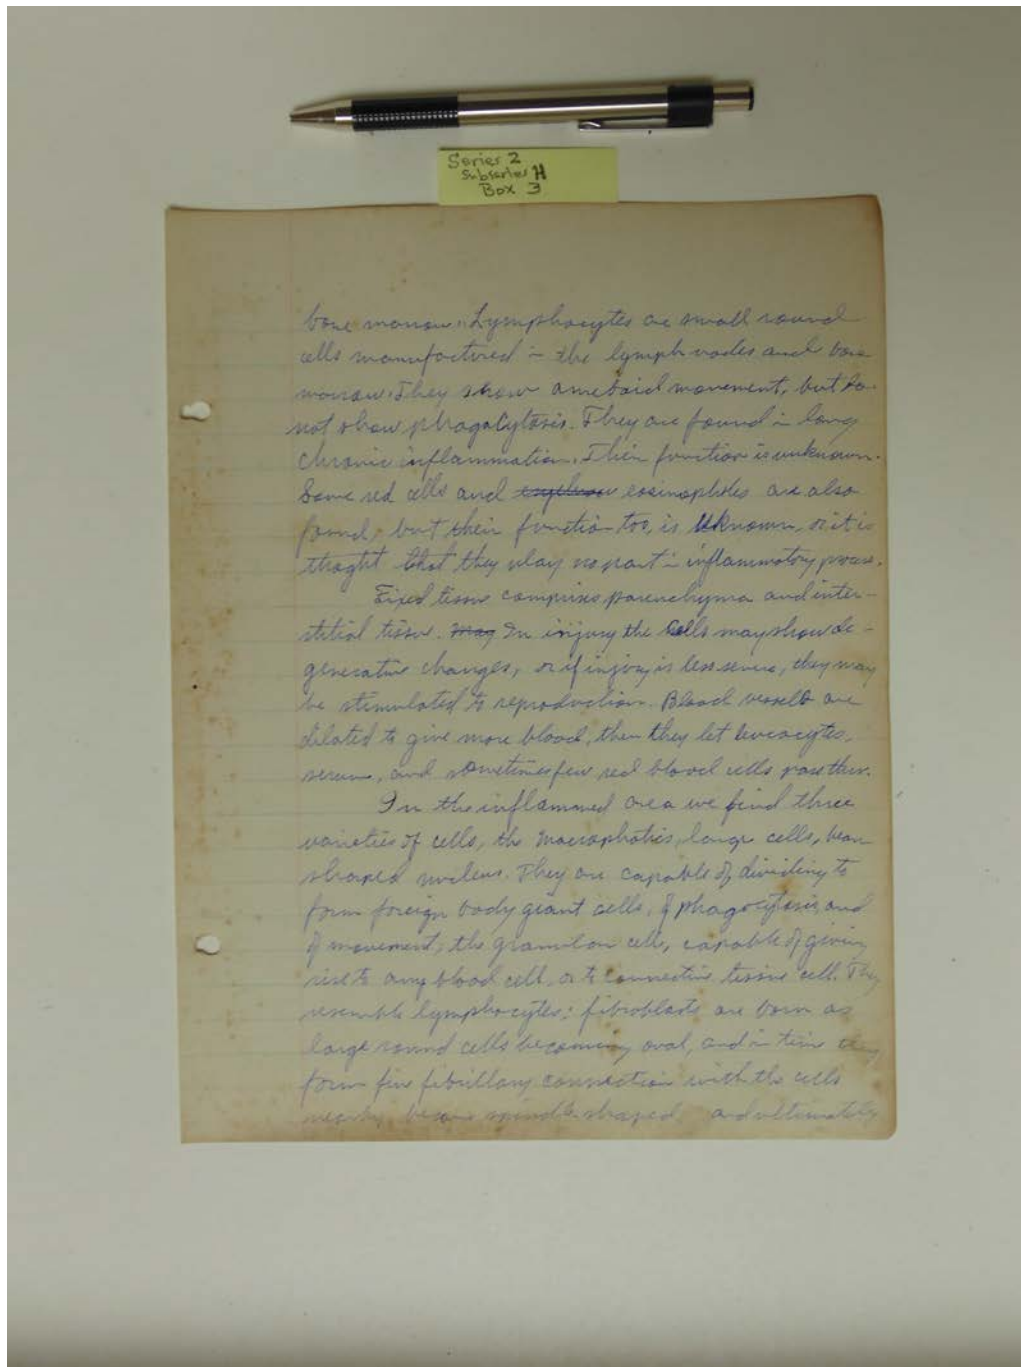 Series 2
Subseries H
Box 3
bone marrow. Lymphocytes are small round
cells manufactured in the lymph nodes and bone
marrow. They show ameboid movement, but do
not show phagocytosis. They are found in long
chronic inflammation. Their function is unknown.
Some red cells and eosinophiles are also
found, but their function too, is unknown, or it is
thoght that they play no part in inflammatory process.
Fixed tissue comprises parenchyma and inter-
stitial tissue. May In injury the cells may show de-
generative changes, or if injury is less severe, they may
be stimulated to reproduction. Blood vessels are
dilated to give more blood, then they let leucocytes,
serum, and sometimes few red blood cells pass thru.
In the inflammed area we find three
varieties of cells, the large cells, bean
shaped nucleus. They are capable of dividing to
form foreign body giant cells, of phagocytosis and
of movement; the cell, capable of giving
rise to any blood cell or to connective tissue cell. They
resemble lymphocytes; fibroblasts are born as
large round cells becoming oval, and in time they
form fine fibrillary connection with the cells
nearby, become spindle shaped and ultimately